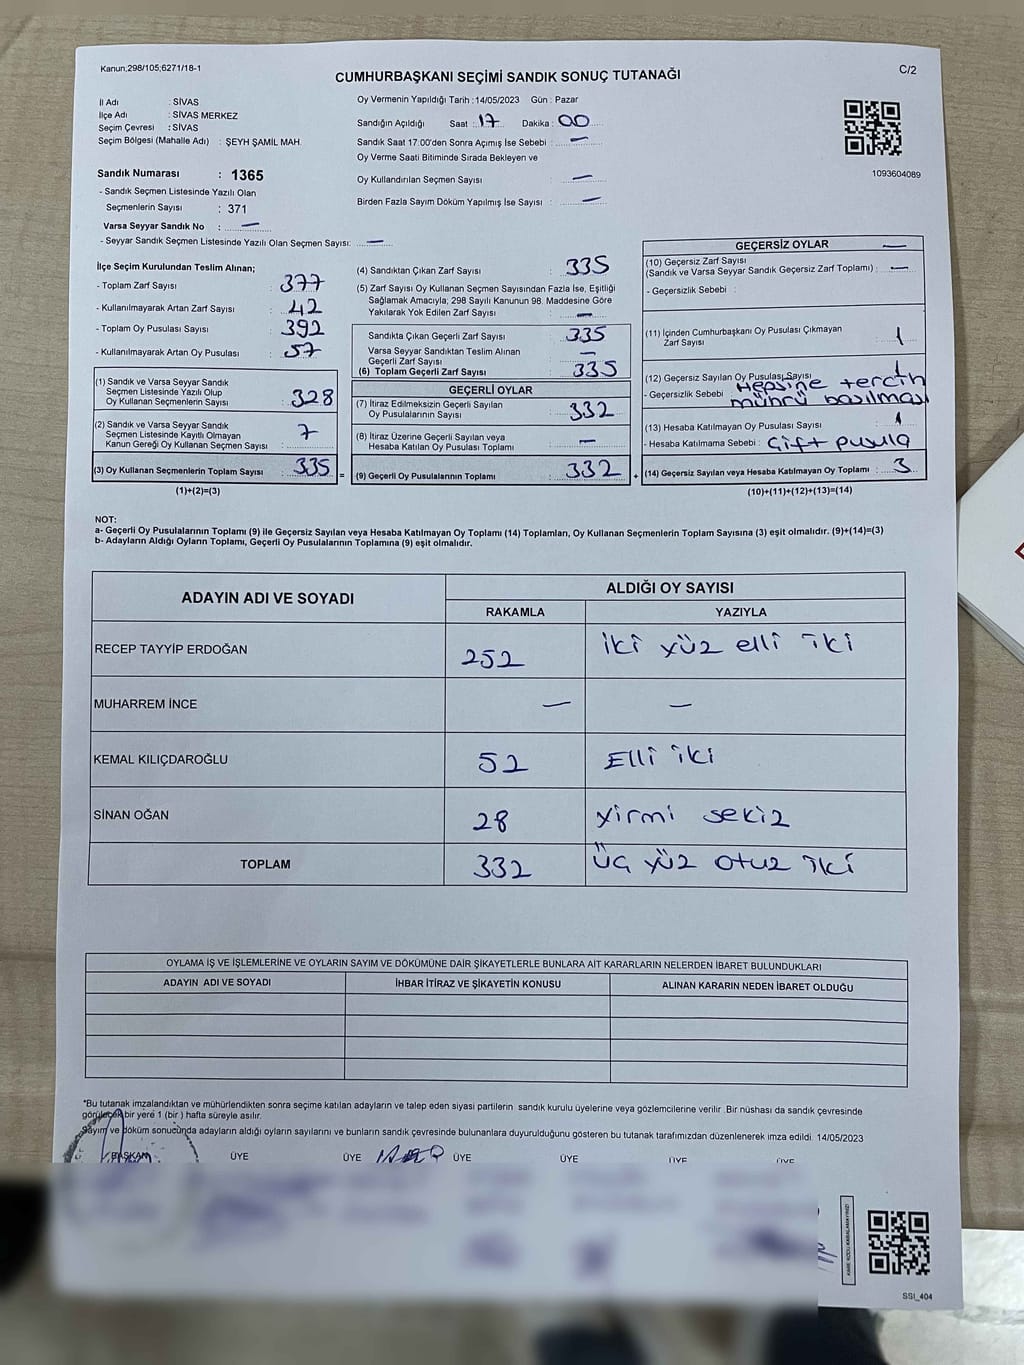 Kanun;298/105;6271/18-1
C/2
CUMHURBAŞKANI SEÇİMİ SANDIK SONUÇ TUTANAĞI
İl Adı : SİVAS
İlçe Adı : SİVAS MERKEZ
Seçim Çevresi : SİVAS
Seçim Bölgesi (Mahalle Adı) : ŞEYH ŞAMİL MAH.
Sandık Numarası : 1365
- Sandık Seçmen Listesinde Yazılı Olan
Seçmenlerin Sayısı : 371
Varsa Seyyar Sandık No : —
- Seyyar Sandık Seçmen Listesinde Yazılı Olan Seçmen Sayısı: —
Oy Vermenin Yapıldığı Tarih : 14/05/2023 Gün : Pazar
Sandığın Açıldığı Saat : 17 Dakika : 00
Sandık Saat 17.00'den Sonra Açımış İse Sebebi : —
Oy Verme Saati Bitiminde Sırada Bekleyen ve
Oy Kullandırılan Seçmen Sayısı : —
Birden Fazla Sayım Döküm Yapılmış İse Sayısı : —
1093604089
İlçe Seçim Kurulundan Teslim Alınan;
- Toplam Zarf Sayısı : 377
- Kullanılmayarak Artan Zarf Sayısı : 42
- Toplam Oy Pusulası Sayısı : 392
- Kullanılmayarak Artan Oy Pusulası : 57
(1) Sandık ve Varsa Seyyar Sandık
Seçmen Listesinde Yazılı Olup
Oy Kullanan Seçmenlerin Sayısı : 328
(2) Sandık ve Varsa Seyyar Sandık
Seçmen Listesinde Kayıtlı Olmayan
Kanun Gereği Oy Kullanan Seçmen Sayısı : 7
(3) Oy Kullanan Seçmenlerin Toplam Sayısı : 335 =
(1)+(2)=(3)
(4) Sandıktan Çıkan Zarf Sayısı : 335
(5) Zarf Sayısı Oy Kullanan Seçmen Sayısından Fazla İse, Eşitliği
Sağlamak Amacıyla, 298 Sayılı Kanunun 98. Maddesine Göre
Yakılarak Yok Edilen Zarf Sayısı : —
Sandıkta Çıkan Geçerli Zarf Sayısı : 335
Varsa Seyyar Sandıktan Teslim Alınan
Geçerli Zarf Sayısı : —
(6) Toplam Geçerli Zarf Sayısı : 335
GEÇERLİ OYLAR
(7) İtiraz Edilmeksizin Geçerli Sayılan
Oy Pusulalarının Sayısı : 332
(8) İtiraz Üzerine Geçerli Sayılan veya
Hesaba Katılan Oy Pusulaları Toplamı : —
(9) Geçerli Oy Pusulalarının Toplamı : 332 +
GEÇERSİZ OYLAR —
(10) Geçersiz Zarf Sayısı
(Sandık ve Varsa Seyyar Sandık Geçersiz Zarf Toplamı) : —
- Geçersizlik Sebebi :
(11) İçinden Cumhurbaşkanı Oy Pusulası Çıkmayan
Zarf Sayısı : 1
(12) Geçersiz Sayılan Oy Pusulası Sayısı : 1
- Geçersizlik Sebebi Hepsine tercih
mührü basılması
(13) Hesaba Katılmayan Oy Pusulası Sayısı : 1
- Hesaba Katılmama Sebebi : Çift pusula
(14) Geçersiz Sayılan veya Hesaba Katılmayan Oy Toplamı : 3
(10)+(11)+(12)+(13)=(14)
NOT:
a- Geçerli Oy Pusulalarının Toplamı (9) ile Geçersiz Sayılan veya Hesaba Katılmayan Oy Toplamı (14) Toplamları, Oy Kullanan Seçmenlerin Toplam Sayısına (3) eşit olmalıdır. (9)+(14)=(3)
b- Adayların Aldığı Oyların Toplamı, Geçerli Oy Pusulalarının Toplamına (9) eşit olmalıdır.
ADAYIN ADI VE SOYADI
ALDIĞI OY SAYISI
RAKAMLA YAZIYLA
RECEP TAYYİP ERDOĞAN 252 iki yüz elli iki
MUHARREM İNCE — —
KEMAL KILIÇDAROĞLU 52 Elli iki
SİNAN OĞAN 28 yirmi sekiz
TOPLAM 332 üç yüz otuz iki
OYLAMA İŞ VE İŞLEMLERİNE VE OYLARIN SAYIM VE DÖKÜMÜNE DAİR ŞİKAYETLERLE BUNLARA AİT KARARLARIN NELERDEN İBARET BULUNDUKLARI
ADAYIN ADI VE SOYADI İHBAR İTİRAZ VE ŞİKAYETİN KONUSU ALINAN KARARIN NEDEN İBARET OLDUĞU
*Bu tutanak imzalandıktan ve mühürlendikten sonra seçime katılan adayların ve talep eden siyasi partilerin sandık kurulu üyelerine veya gözlemcilerine verilir .Bir nüshası da sandık çevresinde
görülecek bir yere 1 (bir ) hafta süreyle asılır.
Sayım ve döküm sonucunda adayların aldığı oyların sayılarını ve bunların sandık çevresinde bulunanlara duyurulduğunu gösteren bu tutanak tarafımızdan düzenlenerek imza edildi. 14/05/2023
BAŞKAN ÜYE ÜYE ÜYE ÜYE ÜYE ÜYE
SSI_404